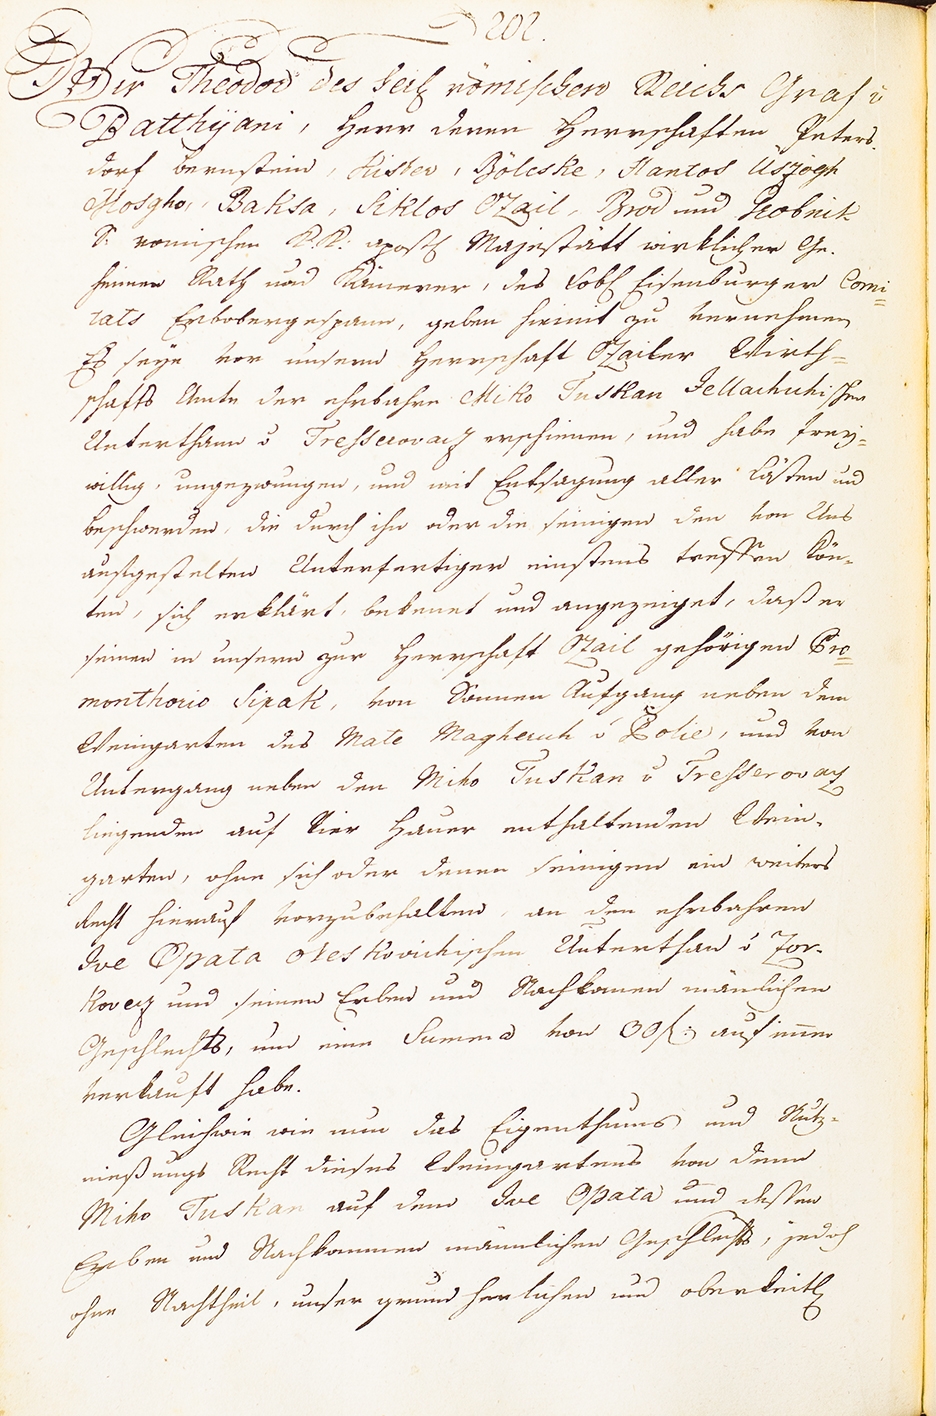 202.
Wir Theodor des heil römischen Reichs Graf v
Batthÿani, Herr deren Herrschaften Peters-
dorf Bernstein, Kisber, Bölcske, Kantos Üszögh
Mosgho, Baksa, Siklos Ozail, Brod und Grobnik
Sr römischen K.K. apostl Majestätt wirklicher Ge-
heimer Rath und Kämerer, des Löbl Eisenburger Comi=
tats Erbobergespann, geben hiemit zu vernehmen
Es seÿe vor unsern Herrschaft Ozailer Wirth=
schafts Amte der ehrbahre Miko Tuskan Jellachichischer
Unterthann v Tresserovacz erschienen, und habe freÿ=
willig, ungezwungen, und mit Entsagung aller Lästen und
Beschwerden, die durch ihn oder die seinigen den von Uns
ausgestelten Unterfertiger einstens treffen kön-
ten, sich erklärt, bekenet und angezeiget, daß er
seinen in unsern zur Herrschaft Ozail gehörigen Pro=
monthorio Sipak, von Sonnen Aufgang neben dem
Weingarten des Mate Magherich v Polie, und von
Untergang neben den Miko Tuskan v Tresserovacz
liegenden auf Vier Hauer enthaltenden Wein-
garten, ohne sich oder denen seinigen ein weiters
Recht hierauf vorzubehalten, an den ehrbahren
Ive Opata Oreskovichischen Unterthan v Zor-
kovacz und seinen Erben und Nachkomen mänlichen
Geschlechts, um eine Summa von 30 f: auf imer
verkauft habe.
Gleichwie wir nun das Eigenthums und Nutz-
nießungs Recht dieses Weingartens von dem
Miko Tuskan auf dem Ive Opata und dessen
Erben und Nachkommen männlichen Geschlechts, jedoch
ohne Nachtheil, unser grundherlichen und oberkeitl